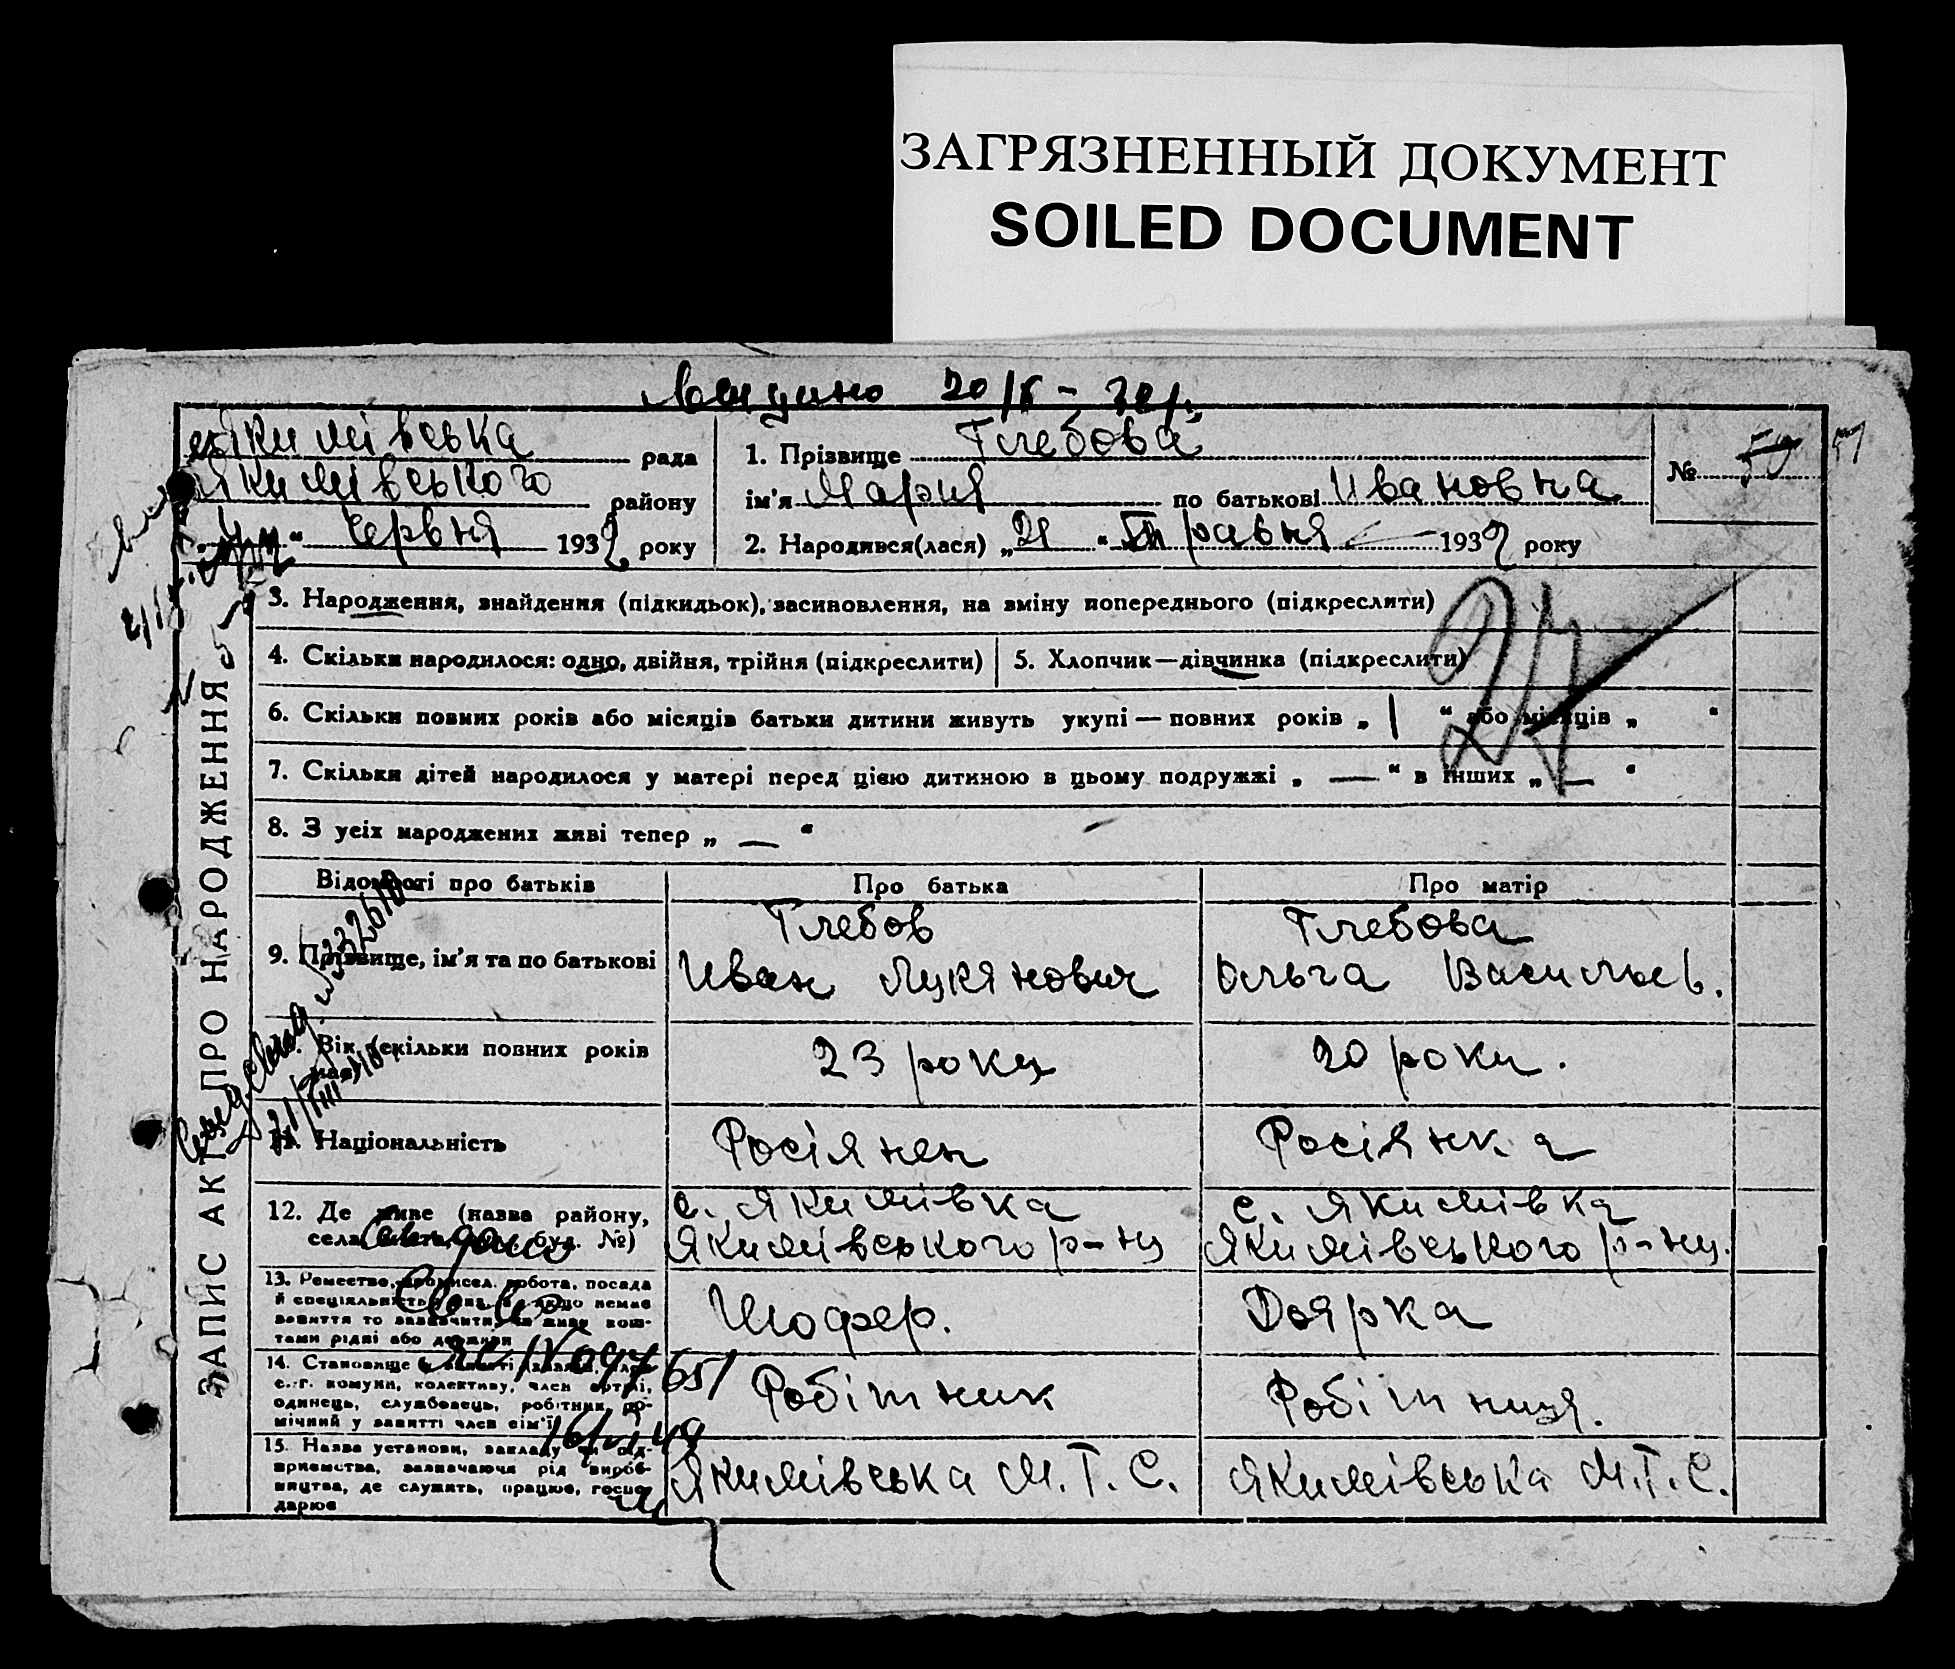 ЗАГРЯЗНЕННЫЙ ДОКУМЕНТ
SOILED DOCUMENT
Якимівська рада
Якимівського району
Червня 1932 року
1. Прізвище Глебова
ім'я Мария по батькові Ивановна
2. Народився(лася) „21“ Травня 1932 року
№
ЗАПИС АКТ ПРО НАРОДЖЕННЯ
3. Народження, знайдення (підкидьок), засиновлення, на зміну попереднього (підкреслити)
4. Скільки народилося: одно, двійня, трійня (підкреслити)
5. Хлопчик—дівчинка (підкреслити)
6. Скільки повних років або місяців батьки дитини живуть укупі — повних років „1“ або місяців „ “
7. Скільки дітей народилося у матері перед цією дитиною в цьому подружжі „—“ в інших „—“
8. З усіх народжених живі тепер „—“
Відомості про батьків
Про батька
Про матір
9. Прізвище, ім'я та по батькові
Глебов
Иван Лукянович
Глебова
Ольга Васильев.
Вік (скільки повних років має)
23 року
20 роки.
11. Національність
Росіянен
Росіянка
12. Де живе (назва району,
села буд. №)
с. Якимівка
Якимівського р-ну
с. Якимівка
Якимівського р-ну.
13. Ремество, промисел, робота, посада
й спеціяльність якщо немає
заняття то зазначити, чи живе кош-
тами рідні або держави
Шофер.
Доярка
14. Становище
с.-г. комуни, колективу, член артілі,
одинець, службовець, робітник, по-
мічний у занятті член сім'ї
Робітник
Робітниця.
15. Назва установи, закладу чи під-
приємства, зазначаючи рід вироб-
ництва, де служить, працює, госпо-
дарює
Якимівська М.Т.С.
Якимівська М.Т.С.